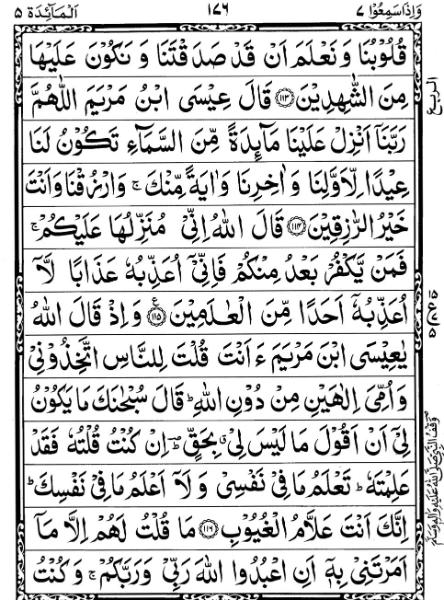 وَاِذَاسَمِعُوْا ۷ ۱۷۶ اَلْمَآئِدَة ۵
قُلُوْبُنَا وَ نَعْلَمَ اَنْ قَدْ صَدَقْتَنَا وَ نَكُوْنَ عَلَيْهَا
مِنَ الشّٰهِدِيْنَ ۝۱۱۳ قَالَ عِيْسَى ابْنُ مَرْيَمَ اللّٰهُمَّ
رَبَّنَاۤ اَنْزِلْ عَلَيْنَا مَآىِٕدَةً مِّنَ السَّمَآءِ تَكُوْنُ لَنَا
عِيْدًا لِّاَوَّلِنَا وَ اٰخِرِنَا وَ اٰيَةً مِّنْكَ ۚ وَارْزُقْنَا وَاَنْتَ
خَيْرُ الرّٰزِقِيْنَ ۝۱۱۴ قَالَ اللّٰهُ اِنِّىْ مُنَزِّلُهَا عَلَيْكُمْ ۚ
فَمَنْ يَّكْفُرْ بَعْدُ مِنْكُمْ فَاِنِّىْۤ اُعَذِّبُهٗ عَذَابًا لَّاۤ
اُعَذِّبُهٗۤ اَحَدًا مِّنَ الْعٰلَمِيْنَ ۝۱۱۵ وَ اِذْ قَالَ اللّٰهُ
يٰعِيْسَى ابْنَ مَرْيَمَ ءَاَنْتَ قُلْتَ لِلنَّاسِ اتَّخِذُوْنِىْ
وَ اُمِّىَ اِلٰهَيْنِ مِنْ دُوْنِ اللّٰهِ ؕ قَالَ سُبْحٰنَكَ مَا يَكُوْنُ
لِىْۤ اَنْ اَقُوْلَ مَا لَيْسَ لِىْ ۗ بِحَقٍّ ؕ اِنْ كُنْتُ قُلْتُهٗ فَقَدْ
عَلِمْتَهٗ ؕ تَعْلَمُ مَا فِىْ نَفْسِىْ وَ لَاۤ اَعْلَمُ مَا فِىْ نَفْسِكَ ؕ
اِنَّكَ اَنْتَ عَلَّامُ الْغُيُوْبِ ۝۱۱۶ مَا قُلْتُ لَهُمْ اِلَّا مَاۤ
اَمَرْتَنِىْ بِهٖۤ اَنِ اعْبُدُوا اللّٰهَ رَبِّىْ وَ رَبَّكُمْ ۚ وَ كُنْتُ
الربع